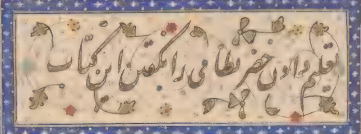 تعلیم دادن خضر نظامی را در گفتن این کتاب